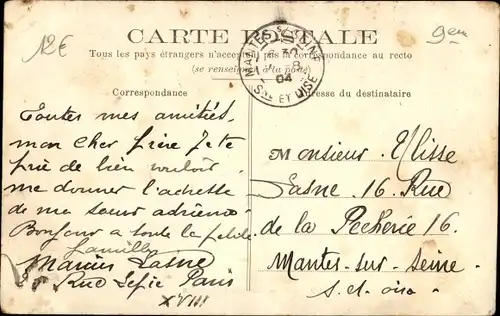 12€
9em
CARTE POSTALE
Tous les pays étrangers n'acceptent pas la correspondance au recto
(se renseigner à la poste)
MANTES S. SEINE
04
S.ne ET OISE
Correspondance
Adresse du destinataire
Toutes mes amitiés,
mon cher frère Je te
prie de bien vouloir
me donner l'achesse
de ma sœur adrienne
Bonjour a toute la petite
famille
Marius Lasne
Rue Lepic Paris
XVIII
Monsieur Ulisse
Lasne 16 Rue
de la Pecherie 16
Mantes-sur-Seine
S. et oise